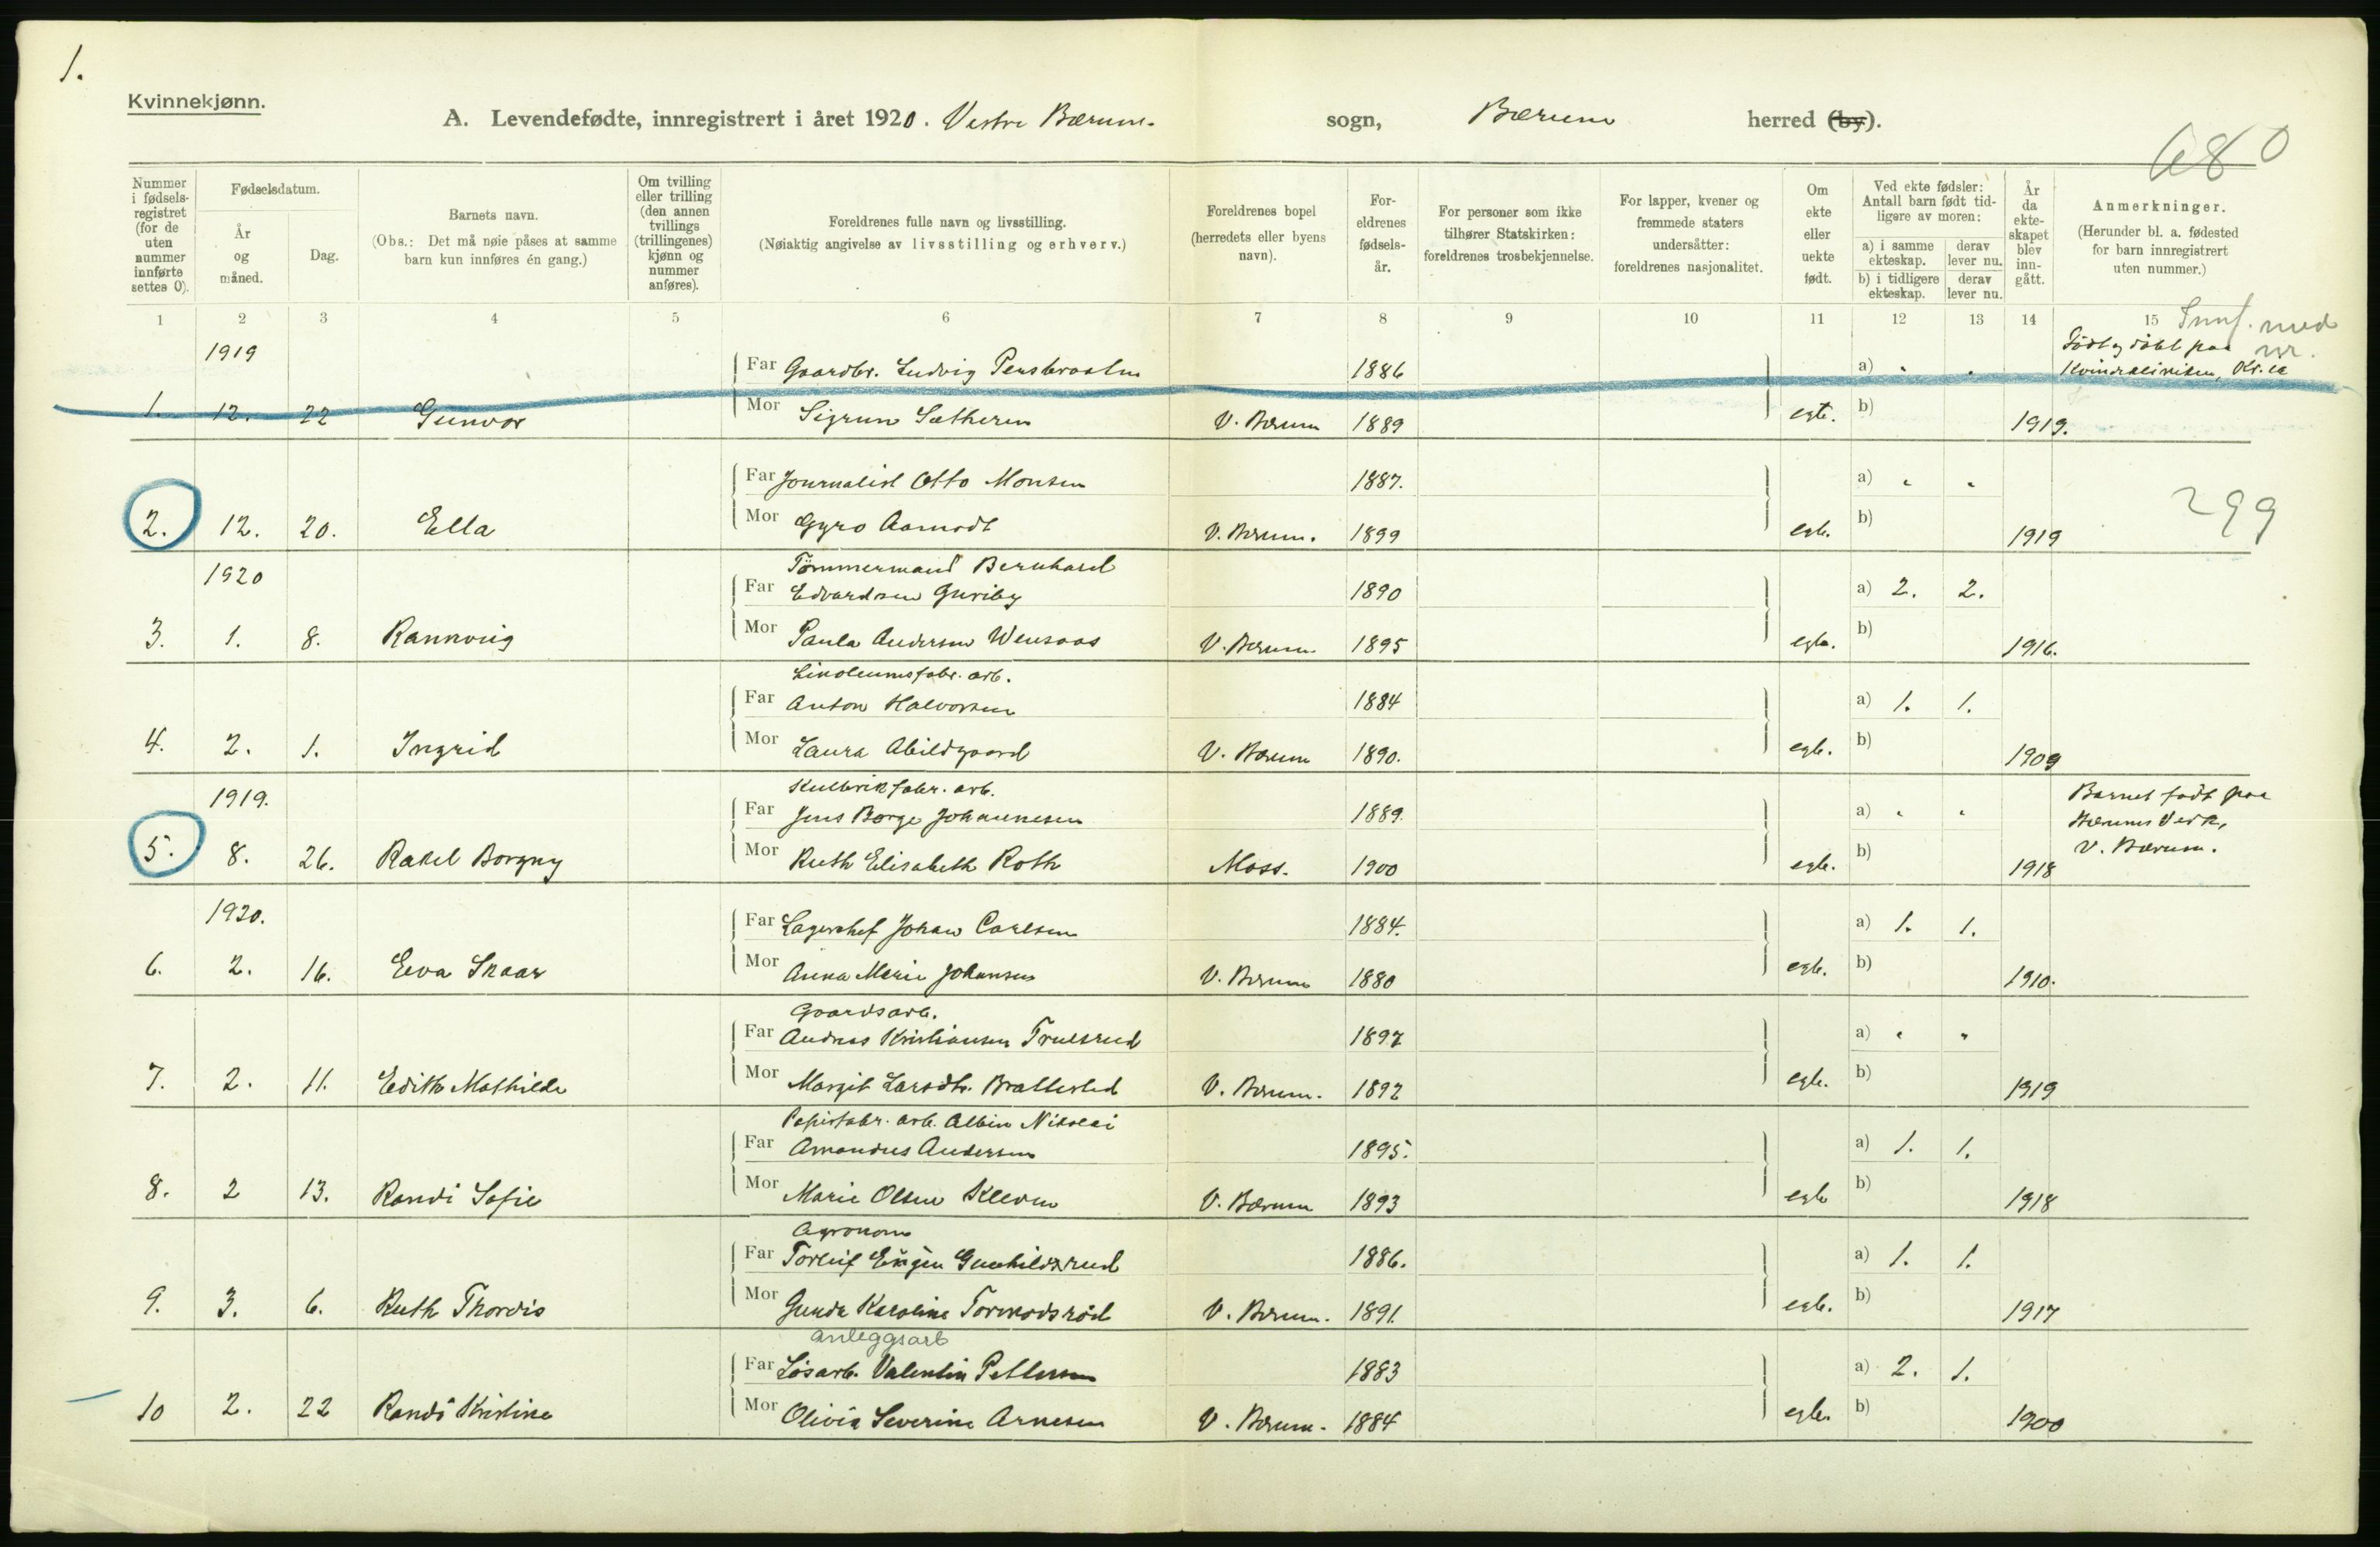 1.
Kvinnekjønn.
A. Levendefødte, innregistrert i året 1920. Vestre Bærum. sogn, Bærum herred (by).
680
Nummer i fødsels-registret (for de uten nummer innførte settes 0).
Fødselsdatum.
År og måned.
Dag.
Barnets navn.
(Obs.: Det må nøie påses at samme barn kun innføres én gang.)
Om tvilling eller trilling (den annen tvillings (trillingenes) kjønn og nummer anføres).
Foreldrenes fulle navn og livsstilling.
(Nøiaktig angivelse av livsstilling og erhverv.)
Foreldrenes bopel (herredets eller byens navn).
For-eldrenes fødsels-år.
For personer som ikke tilhører Statskirken: foreldrenes trosbekjennelse.
For lapper, kvener og fremmede staters undersåtter: foreldrenes nasjonalitet.
Om ekte eller uekte født.
Ved ekte fødsler: Antall barn født tid-ligere av moren:
a) i samme ekteskap. derav lever nu.
b) i tidligere ekteskap. derav lever nu.
År da ekte-skapet blev inn-gått.
Anmerkninger.
(Herunder bl. a. fødested for barn innregistrert uten nummer.)
1 2 3 4 5 6 7 8 9 10 11 12 13 14 15
med nr.
1919
Far Gaardbr. Ludvig 1886 a) " " Født og døbt paa
Kvindeklinikken, Kr.ia
1. 12. 22 Gunvor Mor Sigrun Sætheren V. Bærum 1889 egte. b) 1919.
Far Journalist Otto Monsen 1887. a) " "
2. 12. 20. Ella Mor Gyro Aamodt V. Bærum. 1899 egte. b) 1919
299
1920 Tömmermand Bernhard
Far Edvardsen Guriby 1890 a) 2. 2.
3. 1. 8. Rannvig Mor Paula Andersen Wensaas V. Bærum 1895 egte. b) 1916.
Linoleumsfabr. arb.
Far Anton Halvorsen 1884 a) 1. 1.
4. 2. 1. Ingrid Mor Laura Abildgaard V. Bærum 1890. egte. b) 1909
1919. fabr. arb.
Far Jens Borge Johannesen 1889. a) " " Barnet født paa
Bærums Verk,
V. Bærum.
5. 8. 26. Rakel Borgny Mor Ruth Elisabeth Roth Moss. 1900 egte. b) 1918
1920.
Far Lagerchef Johan Carlsen 1884. a) 1. 1.
6. 2. 16. Eva Skaar Mor Anna Marie Johansen V. Bærum 1880 egte. b) 1910.
Gaardsarb.
Far Andreas Kristiansen Trulsrud 1897 a) " "
7. 2. 11. Edith Mathilde Mor Margit Larsdtr. V. Bærum. 1892 egte. b) 1919
Papirfabr. arb. Albin Nikolai
Far Amandus Andersen 1895. a) 1. 1.
8. 2 13. Randi Sofie Mor Marie Olsen Kleven V. Bærum 1893 egte b) 1918
Agronom
Far Torleif Eugen Gunhildsrud 1886. a) 1. 1.
9. 3. 6. Ruth Thordis Mor Gunda Karoline Tormodsröd V. Bærum. 1891. egte. b) 1917
anleggsarb
Far Løsarb. Valentin Pettersen 1883 a) 2. 1.
10 2. 22 Randi Kristine Mor Olivia Severine Arnesen V. Bærum. 1884 egte. b) 1900